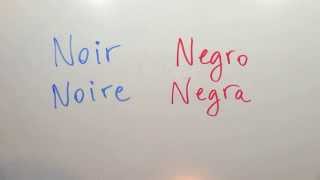 Noir Negro
Noire Negra